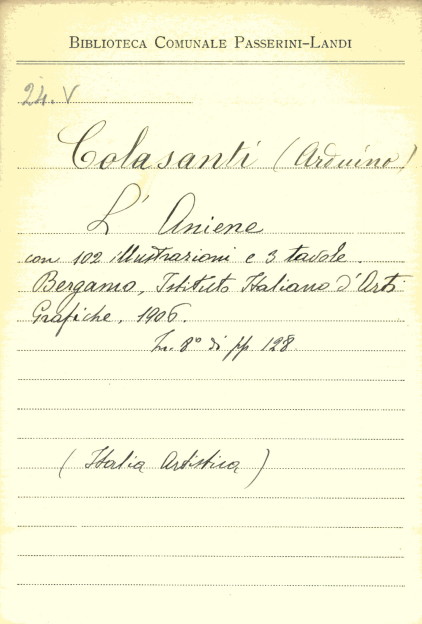 BIBLIOTECA COMUNALE PASSERINI-LANDI
24. V
Colasanti (Arduino)
L' Aniene
con 102 illustrazioni e 3 tavole.
Bergamo, Istituto Italiano d'Arti
Grafiche, 1906.
In. 8° di pp 128
(Italia Artistica)